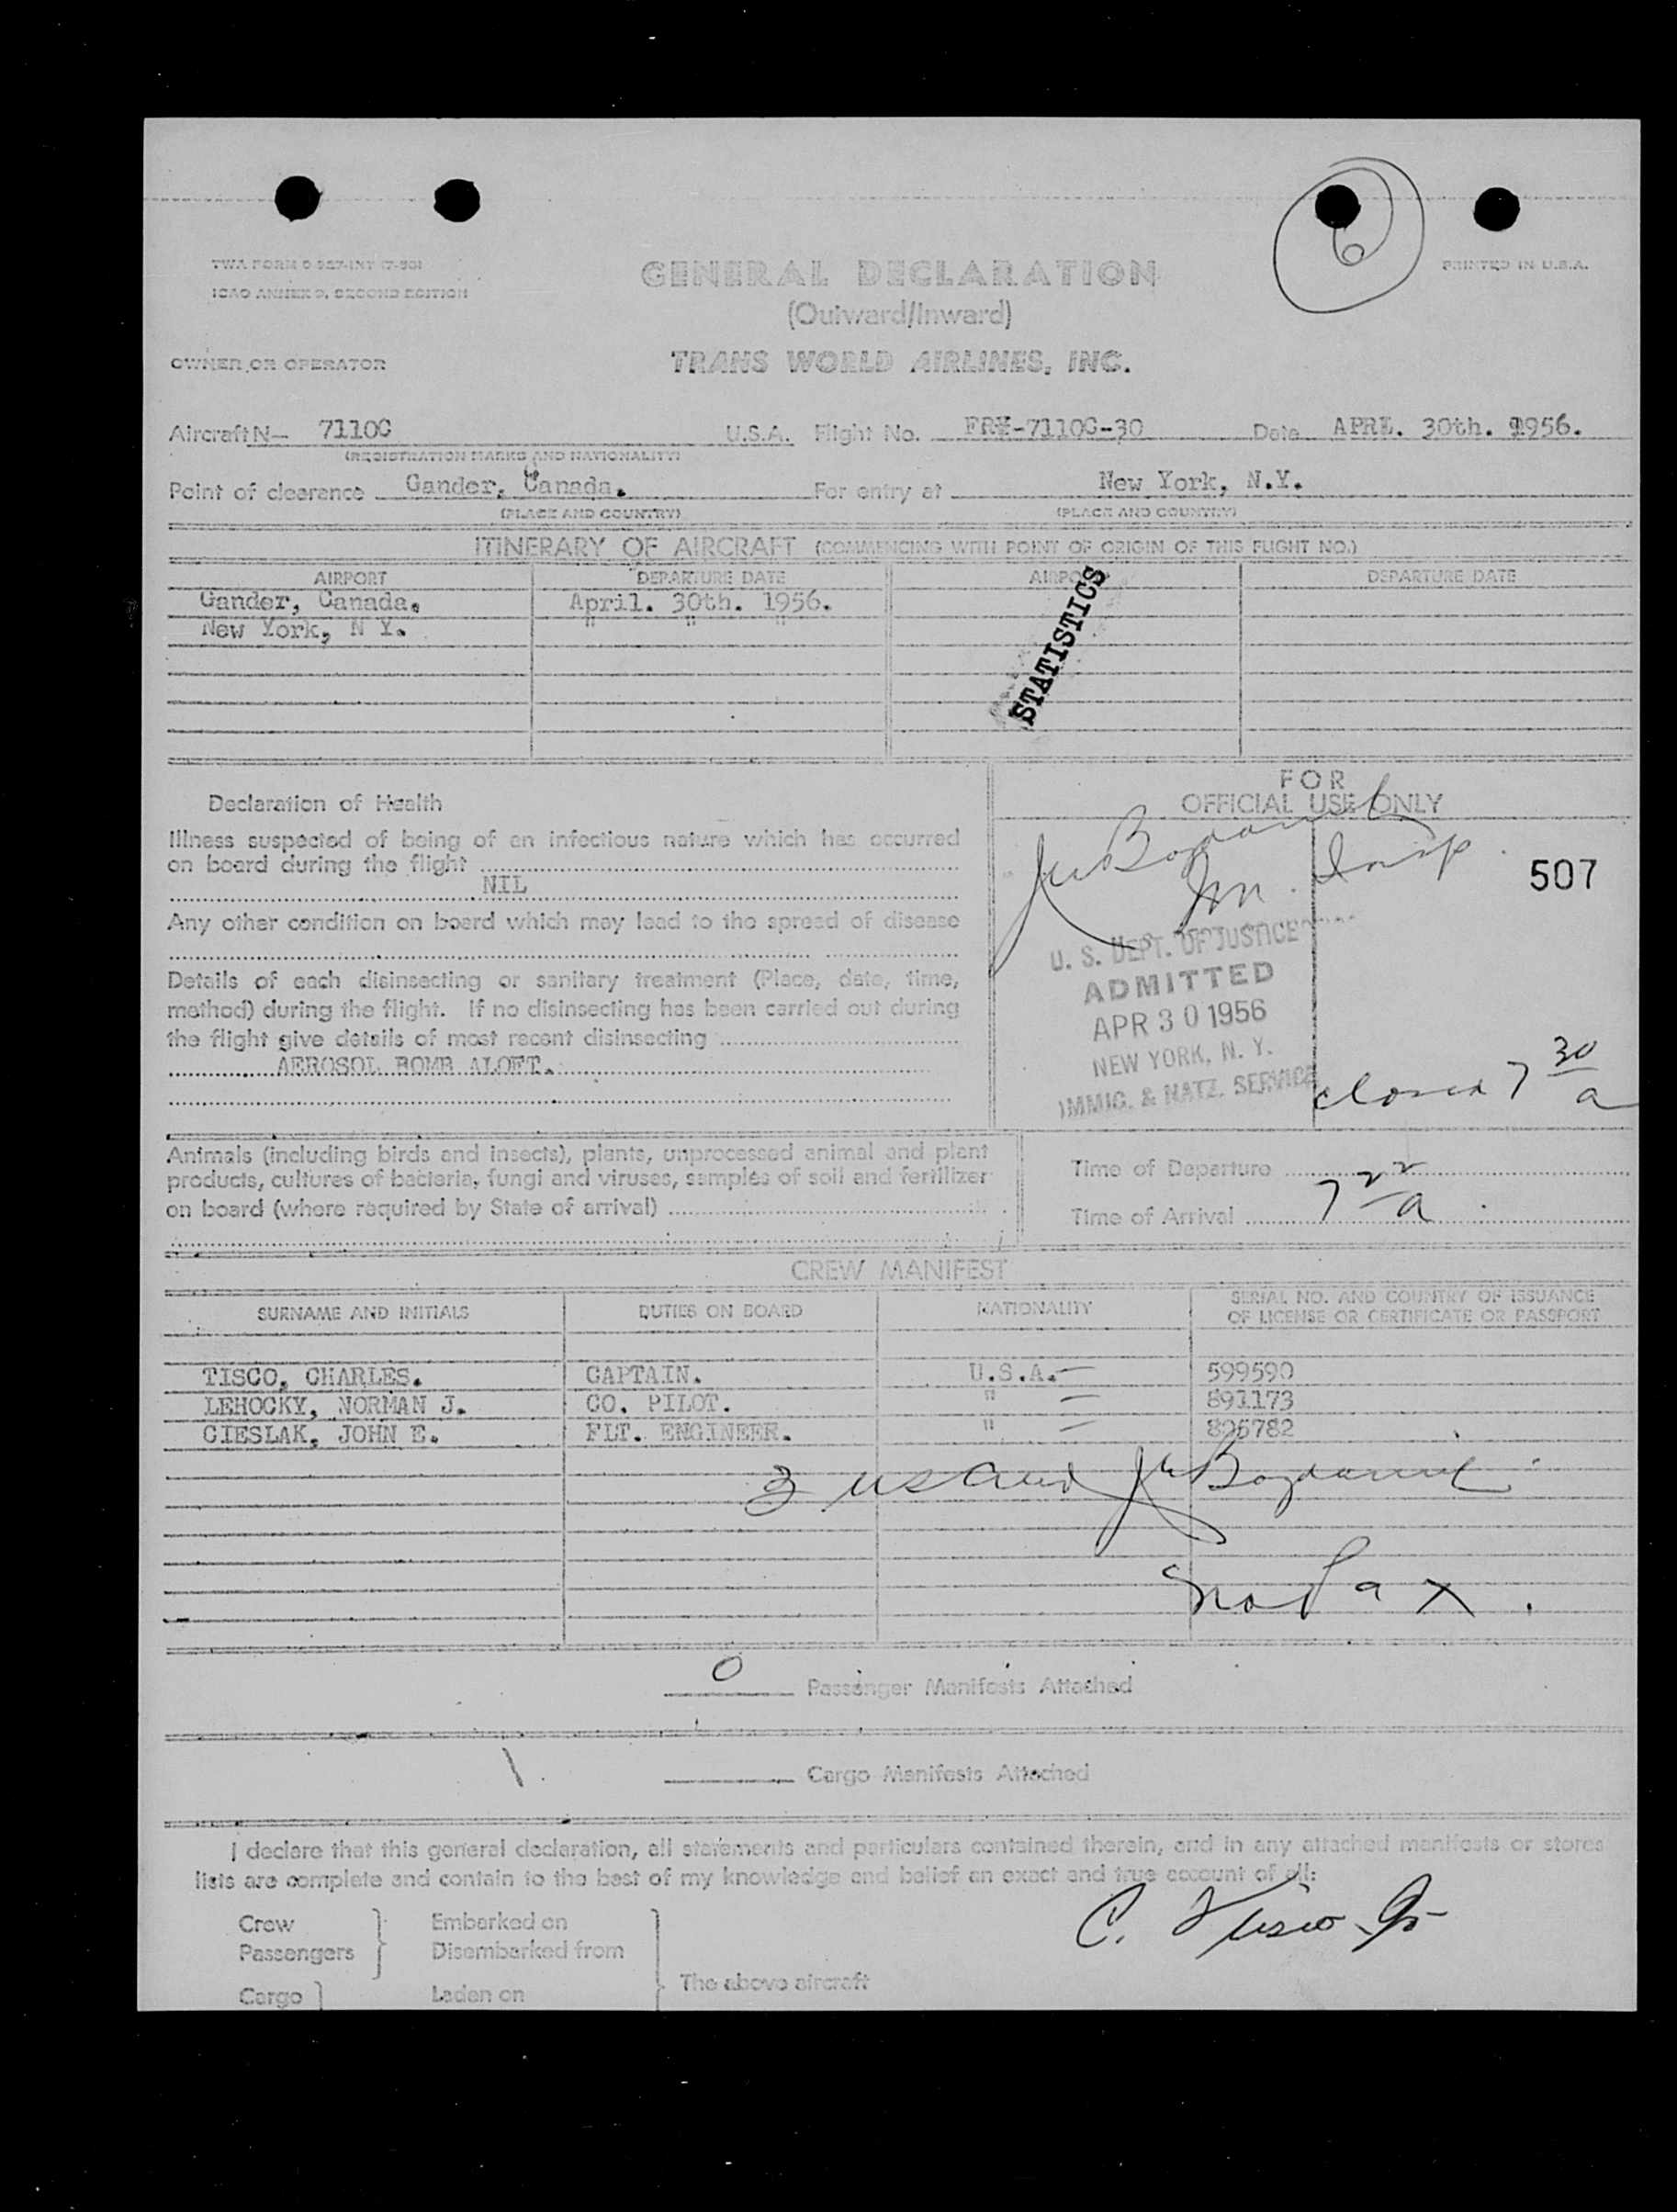 TWA FORM O-927-INT (7-50)
ICAO ANNEX 9, SECOND EDITION
PRINTED IN U.S.A.
GENERAL DECLARATION
(Outward/Inward)
OWNER OR OPERATOR TRANS WORLD AIRLINES, INC.
Aircraft N- 7110C U.S.A. Flight No. FRE-7110C-30 Date APRL. 30th. 1956.
(REGISTRATION MARKS AND NATIONALITY)
Point of clearence Gander, Canada. For entry at New York, N.Y.
(PLACE AND COUNTRY) (PLACE AND COUNTRY)
ITINERARY OF AIRCRAFT (COMMENCING WITH POINT OF ORIGIN OF THIS FLIGHT NO.)
AIRPORT DEPARTURE DATE AIRPORT DEPARTURE DATE
Gander, Canada. April. 30th. 1956.
New York, N Y. " " "
STATISTICS
Declaration of Health
Illness suspected of being of an infectious nature which has occurred
on board during the flight
NIL
Any other condition on board which may lead to the spread of disease
Details of each disinsecting or sanitary treatment (Place, date, time,
method) during the flight. If no disinsecting has been carried out during
the flight give details of most recent disinsecting
AEROSOL BOMB ALOFT.
FOR
OFFICIAL USE ONLY
Im. Insp.
507
U. S. DEPT. OF JUSTICE
ADMITTED
APR 30 1956
NEW YORK, N. Y.
IMMIG. & NATZ. SERVICE
closed 7 30 a
Animals (including birds and insects), plants, unprocessed animal and plant
products, cultures of bacteria, fungi and viruses, samples of soil and fertilizer
on board (where required by State of arrival)
Time of Departure
Time of Arrival 7 22 a
CREW MANIFEST
SURNAME AND INITIALS DUTIES ON BOARD NATIONALITY SERIAL NO. AND COUNTRY OF ISSUANCE
OF LICENSE OR CERTIFICATE OR PASSPORT
TISCO, CHARLES. CAPTAIN. U.S.A. 599590
LEHOCKY, NORMAN J. CO. PILOT. " 891173
CIESLAK, JOHN E. FLT. ENGINEER. " 826782
3 US
no Pax.
0 Passenger Manifests Attached
Cargo Manifests Attached
I declare that this general declaration, all statements and particulars contained therein, and in any attached manifests or stores
lists are complete and contain to the best of my knowledge and belief an exact and true account of all:
C. Tisco Jr
Crew Embarked on
Passengers Disembarked from
The above aircraft
Cargo Laden on